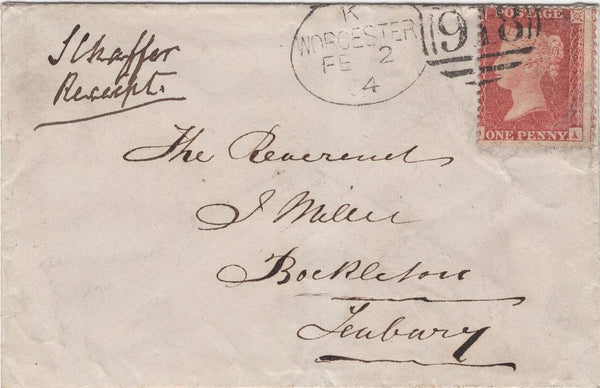 Schaffer
Receipt.
K
WORCESTER
FE 2
4
918
POSTAGE
ONE PENNY A
The Reverend
J Miller
Bockleton
Tenbury